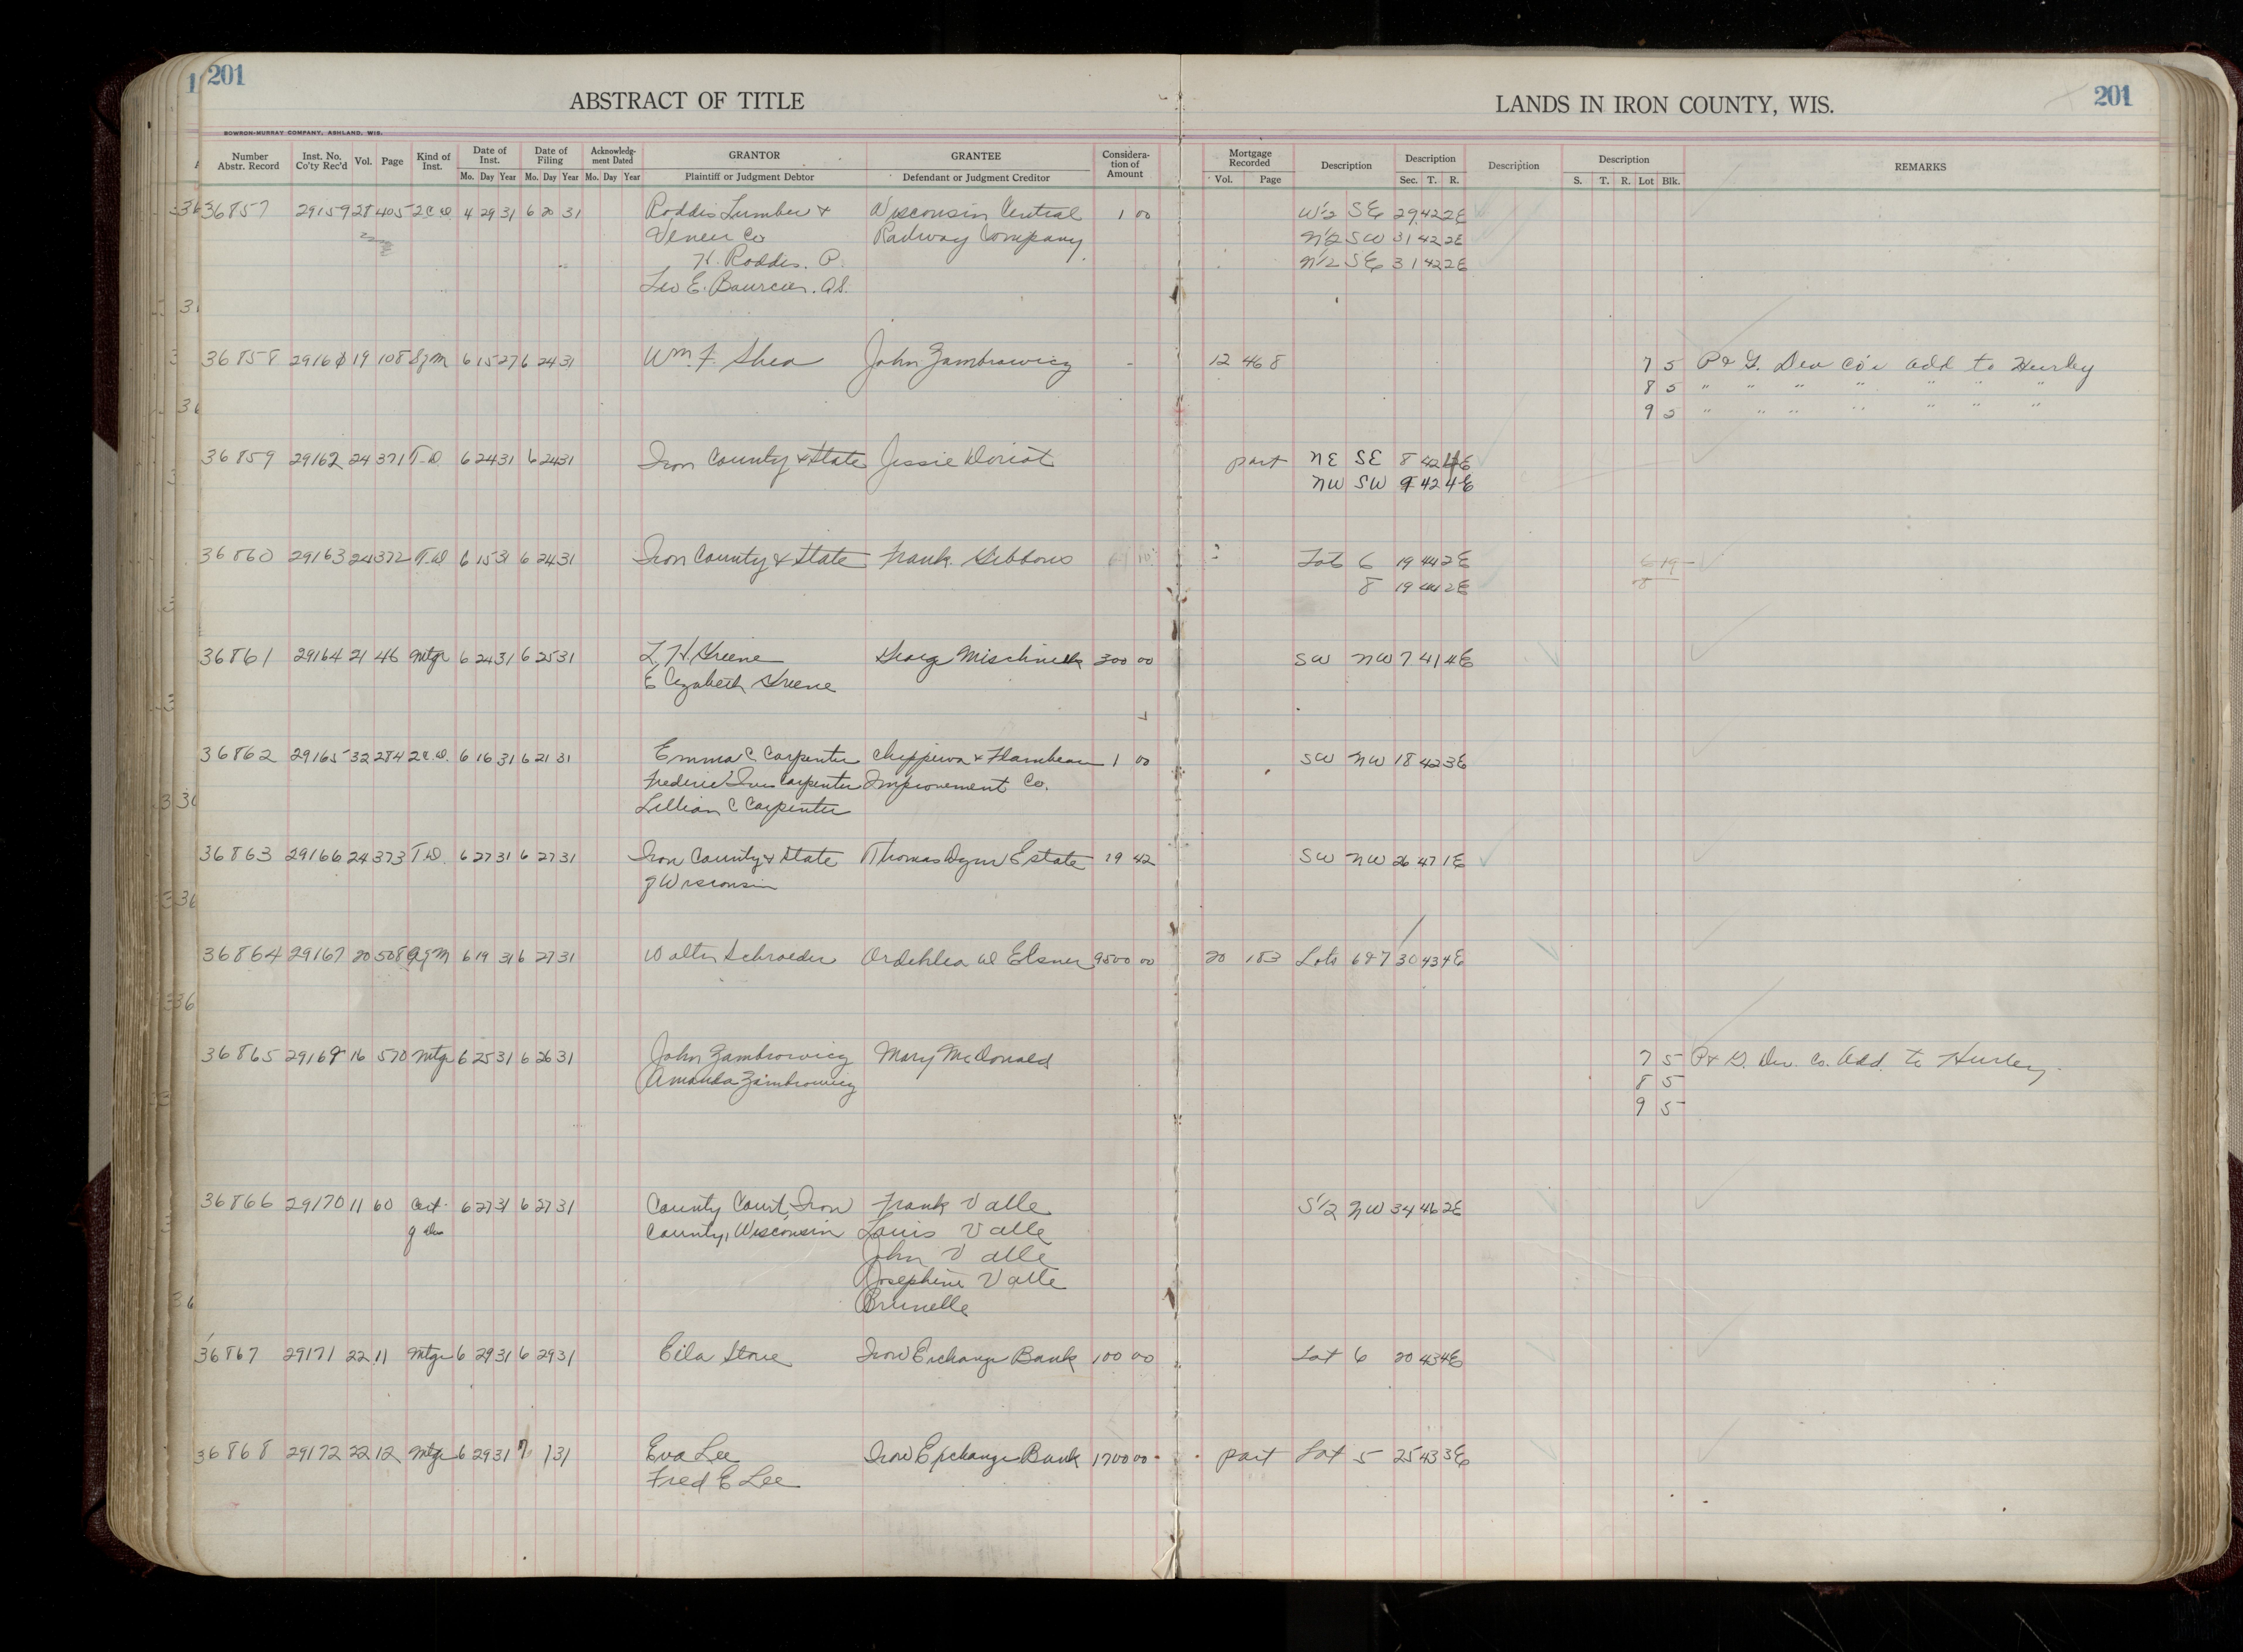 201
ABSTRACT OF TITLE
LANDS IN IRON COUNTY, WIS.
201
BOWRON-MURRAY COMPANY, ASHLAND, WIS.
Number Abstr. Record Inst. No. Co'ty Rec'd Vol. Page Kind of Inst. Date of Inst. Mo. Day Year Date of Filing Mo. Day Year Acknowledgment Dated Mo. Day Year GRANTOR Plaintiff or Judgment Debtor GRANTEE Defendant or Judgment Creditor Consideration of Amount Mortgage Recorded Vol. Page Description Description Sec. T. R. Description Description S. T. R. Lot Blk. REMARKS
36857 29159 28 405 2CD 4 29 31 6 20 31 Roddis Lumber & Wisconsin Central 1 00 W1/2 SE 29 42 2E
Veneer Co Railway Company N1/2 SW 31 42 2E
H. Roddis. P. N1/2 SE 31 42 2E
Leo E. . A.S.
36858 19 108 6 15 27 6 24 31 Wm. F. Shea John Zambrowicz - 12 468 7 5 P & G. Dev Co's add to Hurley
8 5 " " " " " " "
9 5 " " " " " " "
36859 29162 24 371 T.D 6 24 31 6 24 31 Iron County & State Jessie Doriot part NE SE 8 42 4E
NW SW 9 42 4E
36860 29163 24 372 T.D 6 15 31 6 24 31 Iron County & State Frank Gibbons Lot 6 19 44 2E
8 19 44 2E
36861 29164 21 46 Mtge 6 24 31 6 25 31 L. H. Greene George 300 00 SW NW 7 41 4E
Elizabeth Greene
36862 29165 32 284 2C.D. 6 16 31 6 21 31 Emma C Carpenter Chippewa & Flambeau 1 00 SW NW 18 42 3E
Frederic Ives Carpenter Improvement Co.
Lillian C Carpenter
36863 29166 24 373 T.D. 6 27 31 6 27 31 Iron County & State Thomas Estate 19 42 SW NW 26 47 1E
of Wisconsin
36864 29167 20 508 6 19 31 6 27 31 Walter Schroeder W Elsner 9500 00 20 183 Lots 6&7 30 43 4E
36865 16 570 Mtge 6 25 31 6 26 31 John Zambrowicz Mary McDonald 7 5 P & G. Dev. Co. Add. to Hurley.
Amanda Zambrowicz 8 5
9 5
36866 29170 11 60 Cert. 6 27 31 6 27 31 County Court, Iron Frank Valle S1/2 NW 34 46 2E
of County, Wisconsin Louis Valle
John Valle
Josephine Valle
Brunelle
36867 29171 22 11 Mtge 6 29 31 6 29 31 Eila Stone Iron Exchange Bank 100 00 Lot 6 20 43 4E
36868 29172 22 12 Mtge 6 29 31 7 1 31 Eva Lee Iron Exchange Bank 1700 00 part Lot 5 25 43 3E
Fred E Lee